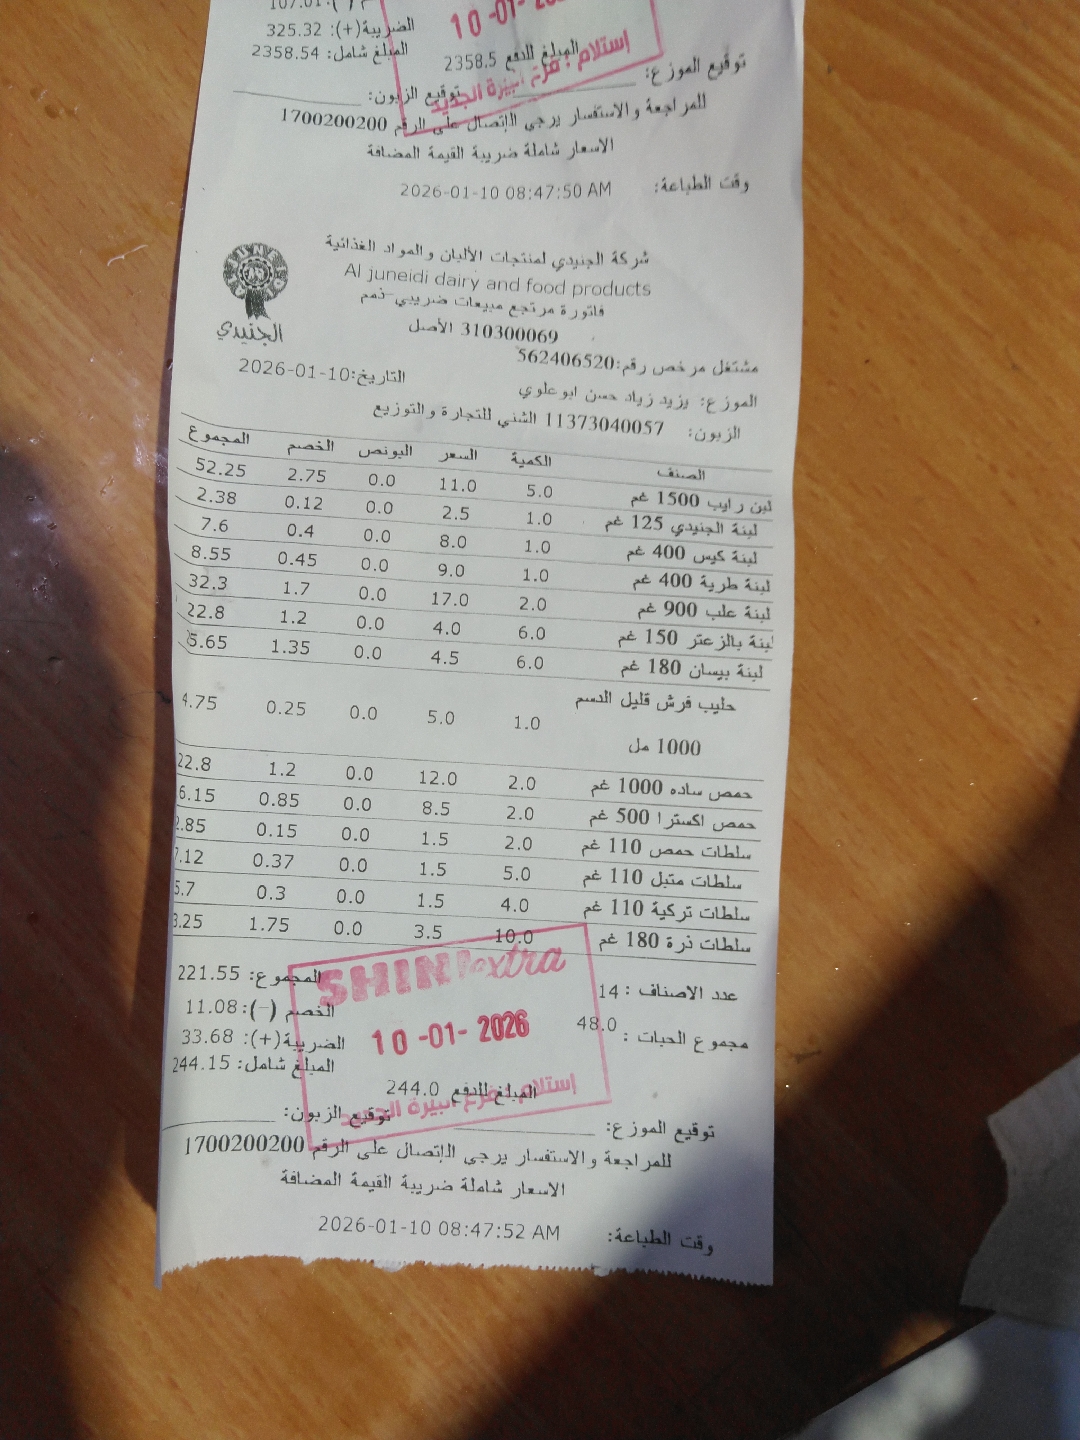 الضريبة(+): 325.32
المبلغ شامل: 2358.54
10-01-
المبلغ للدفع 2358.5
إستلام : فرع البيرة الجديد
توقيع الموزع:
توقيع الزبون:
للمراجعة والاستفسار يرجى الإتصال على الرقم 1700200200
الاسعار شاملة ضريبة القيمة المضافة
وقت الطباعة: 2026-01-10 08:47:50 AM
JUNEIDI
الجنيدي
شركة الجنيدي لمنتجات الألبان والمواد الغذائية
Al juneidi dairy and food products
فاتورة مرتجع مبيعات ضريبي-ذمم
310300069 الأصل
مشتغل مرخص رقم:562406520
التاريخ:2026-01-10
الموزع: يزيد زياد حسن ابوعلوي
الزبون: 11373040057 الشني للتجارة والتوزيع
الصنف الكمية السعر البونص الخصم المجموع
لبن رايب 1500 غم 5.0 11.0 0.0 2.75 52.25
لبنة الجنيدي 125 غم 1.0 2.5 0.0 0.12 2.38
لبنة كيس 400 غم 1.0 8.0 0.0 0.4 7.6
لبنة طرية 400 غم 1.0 9.0 0.0 0.45 8.55
لبنة علب 900 غم 2.0 17.0 0.0 1.7 32.3
لبنة بالزعتر 150 غم 6.0 4.0 0.0 1.2 22.8
لبنة بيسان 180 غم 6.0 4.5 0.0 1.35 5.65
حليب فرش قليل الدسم
1000 مل 1.0 5.0 0.0 0.25 4.75
حمص ساده 1000 غم 2.0 12.0 0.0 1.2 22.8
حمص اكسترا 500 غم 2.0 8.5 0.0 0.85 6.15
سلطات حمص 110 غم 2.0 1.5 0.0 0.15 .85
سلطات متبل 110 غم 5.0 1.5 0.0 0.37 .12
سلطات تركية 110 غم 4.0 1.5 0.0 0.3 5.7
سلطات ذرة 180 غم 10.0 3.5 0.0 1.75 3.25
عدد الاصناف : 14
المجموع: 221.55
مجموع الحبات : 48.0
الخصم (-): 11.08
الضريبة(+): 33.68
المبلغ شامل: 244.15
SHINI extra
10-01-2026
المبلغ للدفع 244.0
إستلام : فرع البيرة الجديد
توقيع الموزع:
توقيع الزبون:
للمراجعة والاستفسار يرجى الإتصال على الرقم 1700200200
الاسعار شاملة ضريبة القيمة المضافة
وقت الطباعة: 2026-01-10 08:47:52 AM